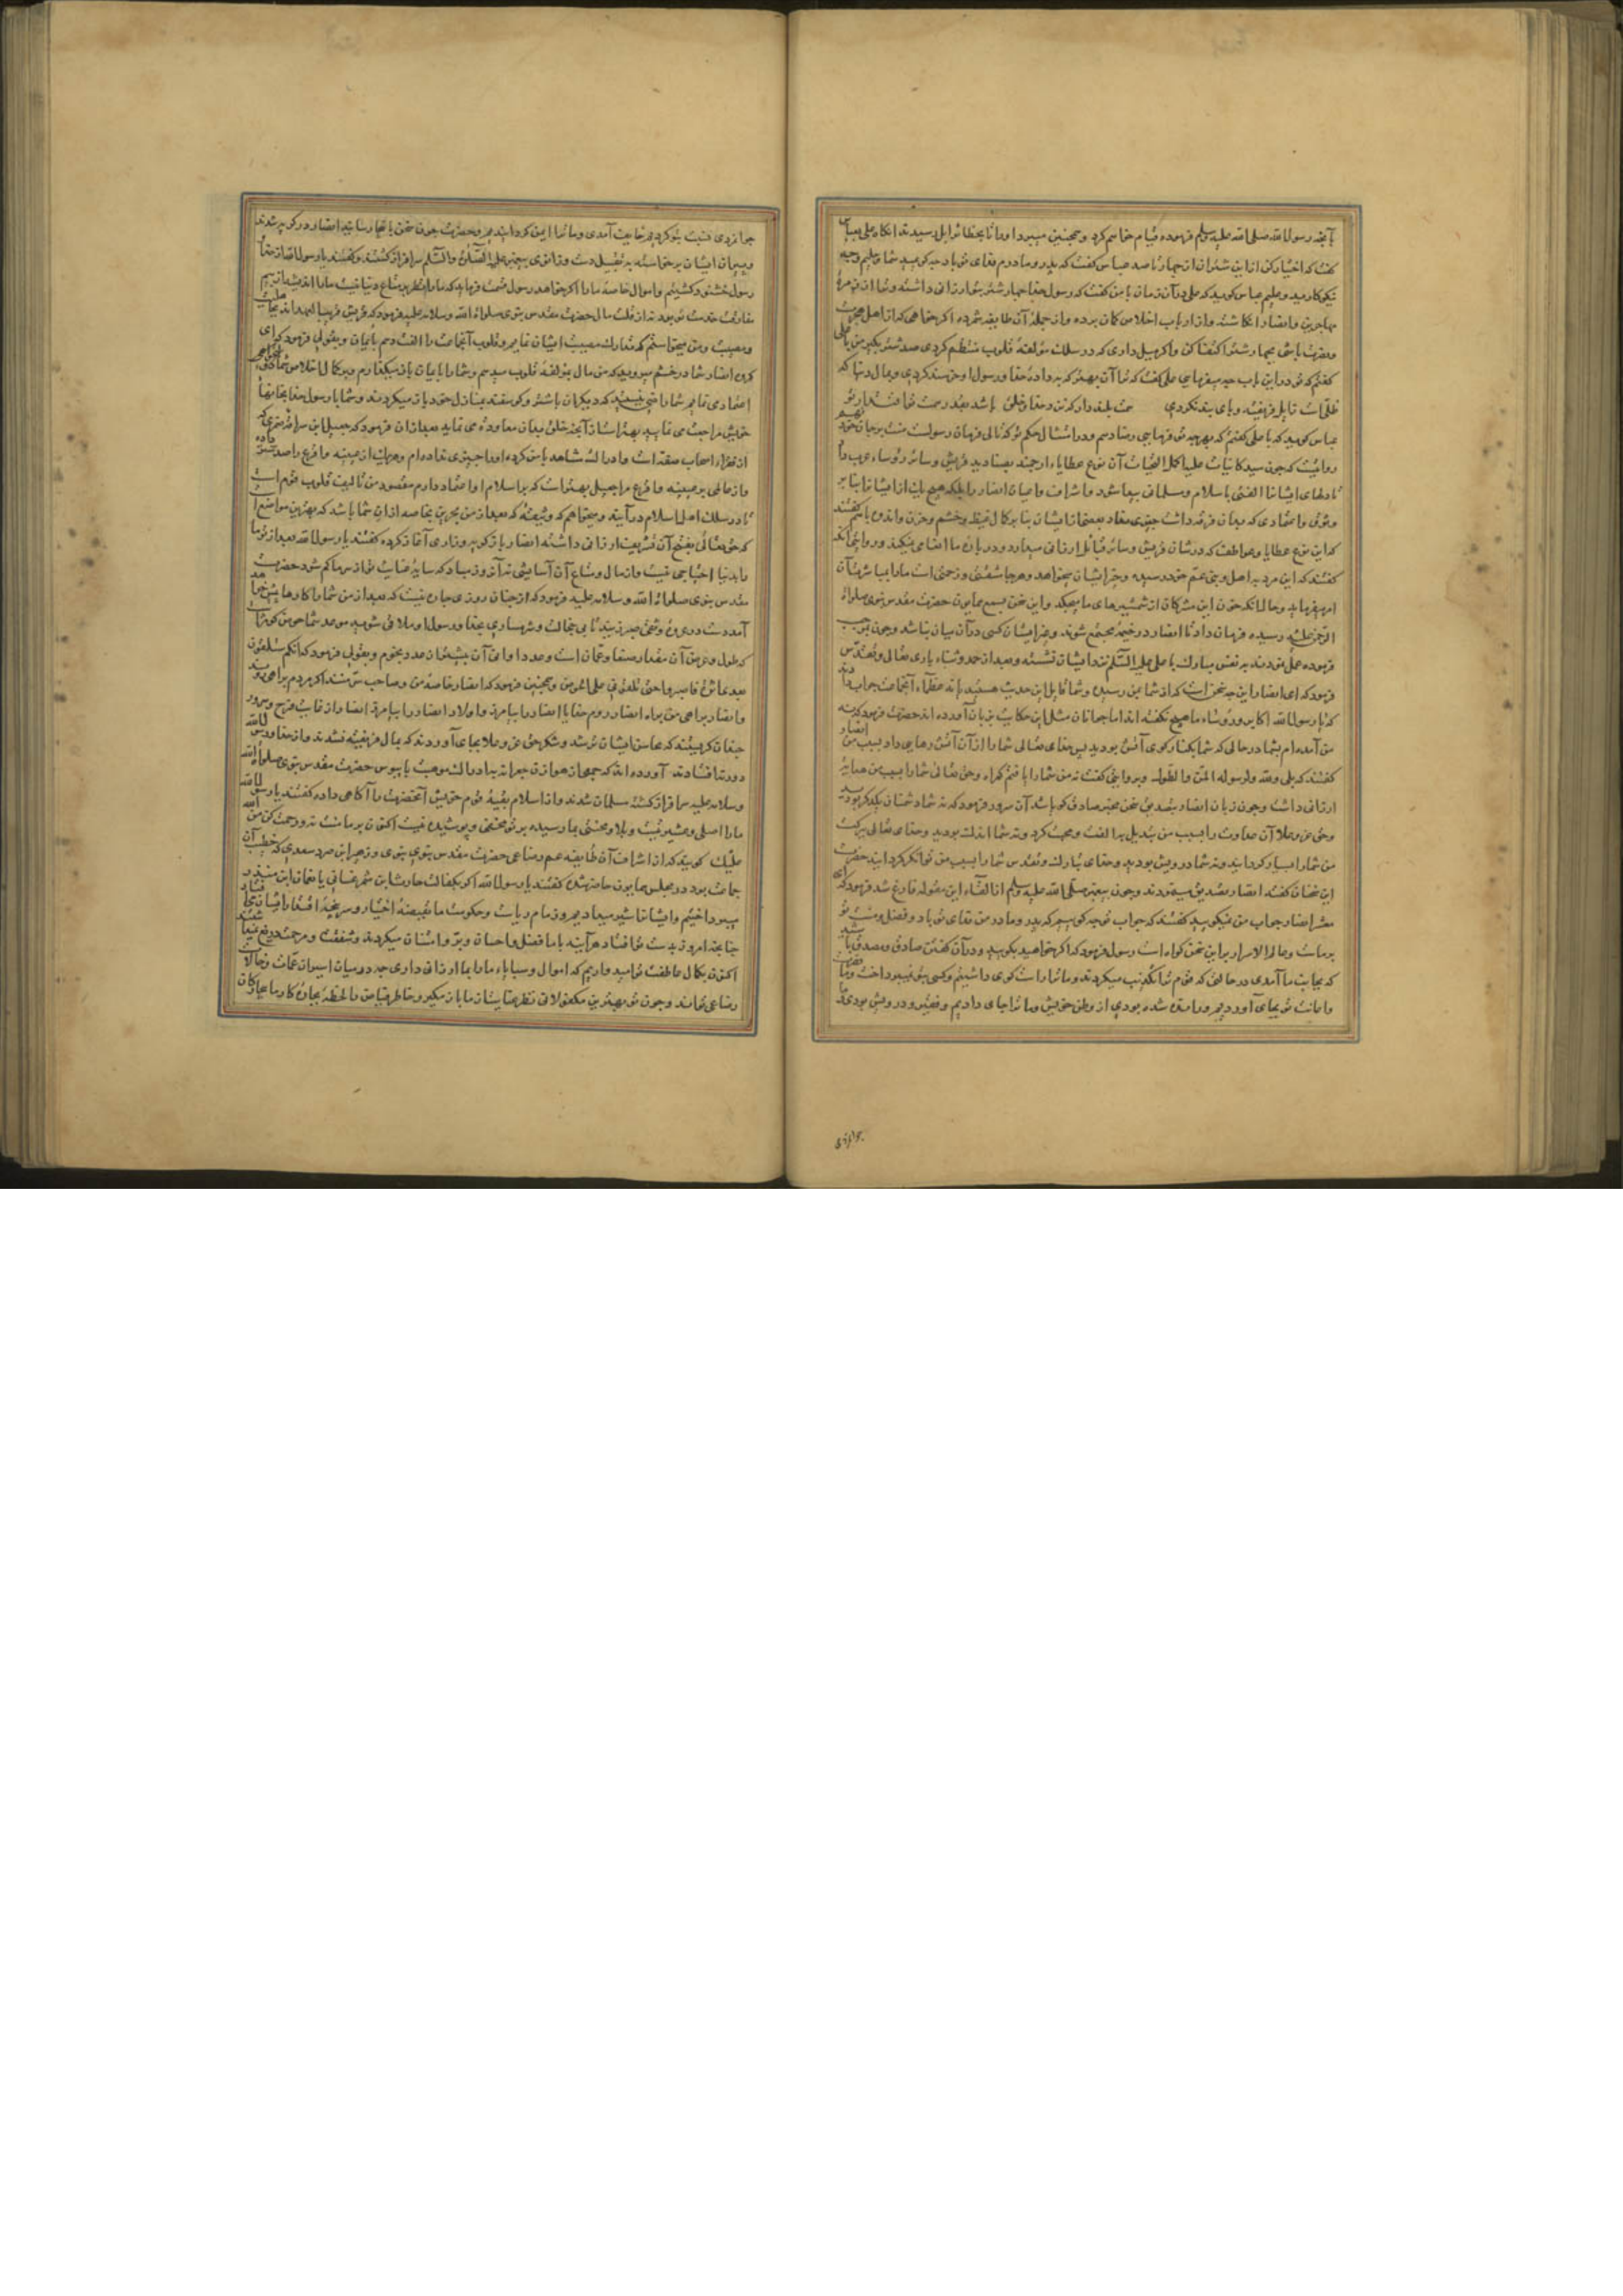 آنچه رسول الله صلی الله علیه وسلم فرموده قیام خواهم کرد و همچنین میبرد او را تا بحظائر ابل رسیدند انکاه علی بعباس
کفت که اختیار کن از این شتران از چهار تا صد عباس کفت که پدر و مادرم فدای تو باد چه کوییید شما و علیم وچه
نیکوکارید و علیم عباس کوید که علی در آن زمان با من کفت که رسول خدا چهار شتر بتو ارزانی داشته و ترا از زمرهٔ
مهاجرین و انصار انکاشته و از ارباب اخلاص کمان برده و از جمله آن طایفه شمرده اکر خواهی که از اهل هجرت
ونصرت باشی بچهار شتر اکتفا کن و اکر میل داری که در سلک مؤلفة قلوب منتظم کردی صد شتر بکیر من با علی
کفتم که تو در این باب چه میفرمایی علی کفت که ترا آن بهتر که به دادهٔ خدا و رسول او خرسند کردی و بمال دنیا که
عباس کوید که با علی کفتم که بهرچه تو فرمایی رضا دهم و در امتثال حکم تو
روایت که چون سید کاینات علیه اکمل التحیات آن نوع عطایاء ارجمند بصنادید قریش و سائر رؤساء عرب داد
تا دلهای ایشان الفتی باسلام و مسلمانی پیدا شد و اشراف و اعیان انصار را بلکه هیچ یک از ایشان را بنا بر
وثوق و اعتمادی که بدان فرقه داشت چیزی نداد بعضی از ایشان بنا بر کمال غیظ و خشم و حزن و اندوه با هم کفتند
که این نوع عطایا و عواطف که در شان قریش و سائر قبائل ارزانی میدارد و در بارهٔ ما امضا می نیکند و روایتی آنکه
کفتند که این مرد به اهل و بنی عم خود رسیده و خیر ایشان میخواهد و هر جا مشقتی و زحمتی است ما را بمباشرت آن
امر میفرماید و حال آنکه خون این مشرکان از شمشیرهای ما میچکد و این سخن بسمع همایون حضرت مقدس نبوی صلوات
الرحمن علیه رسیده فرمان داد تا انصار در خیمه مجتمع شوند و غیر ایشان کسی در آن میان نباشد و چون بموجب
فرموده عمل نمودند به نفس مبارک با علی علیه السلم نزد ایشان نشسته و بعد از حمد و ثناء باری تعالی و تقدس
فرمود که ای انصار این چه سخن است که از شما بمن رسیده و شما قایل این حدیث هستید یا نه عظماء آنجماعت جواب دادند
که یا رسول الله اکابر و رؤساء ما هیچ نکفته اند اما جوانان مثل این حکایت بر زبان آورده اند حضرت فرمود که نه
من آمده ام بشما در حالی که شما بکنار کوی آتش بودید پس خدای تعالی شما را از آن آتش رهایی داد بسبب من انصار
کفتند که بلی ولله ولرسوله المن والطول و بروایتی کفت نه من شما را یافتم کمراه و حق تعالی شما را بسبب من هدایت
ارزانی داشت و چون زبان انصار بتصدیق سخن مخبر صادق کویا شد آن سرور فرمود که نه شما دشمنان یکدیکر بودید
وحق عز وعلا آن عداوت را بسبب من تبدیل به الفت و محبت کرد و نه شما اندک بودید و خدای تعالی ببرکت
من شما را بسیار کردانید و نه شما درویش بودید و خدای تبارک و تقدس شما را بسبب من توانکر کردانید حضرت
این سخنان کفته انصار تصدیق مینمودند و چون پیغمبر صلی الله علیه وسلم از القاء این مقوله فارغ شد فرمود که ای
معشر انصار جواب من نمیکویید کفتند که جواب تو چه کوییم که پدر و مادر من فدای تو باد و فضل و منت تو
بر ماست و عالم الاسرار بر این سخن کواه است رسول فرمود که اکر خواهید بکویید و در آن کفتن صادق و مصدق باشید
که بجانب ما آمدی در حالتی که قوم ترا تکذیب میکردند و ما ترا راست کوی داشتیم و کسی بتو نمیپرداخت و ما نصرت
و اعانت تو بجای آوردیم و رانده شده بودی از وطن خویش و ما ترا جای دادیم و فقیر و درویش بودی و ما
جوانمردی
جوانمردی نسبت بتو کردیم و خایف آمدی و ما ترا ایمن کردانیدیم و حضرت چون سخن باینجا رسانید انصار در کریه شدند
و پیران ایشان برخاسته به تقبیل دست و زانوی پیغمبر علیه الصلوة والسلم سرافراز کشتند و کفتند یا رسول الله از خدا و
رسول خشنود کشتیم و اموال خاصه ما را اکر خواهد رسول قسمت فرماید که ما را نظر بر متاع دنیا نیست ما را اندیشه از بیم
مفارقت خدمت تو بود نه از قلت مال حضرت مقدس نبوی صلوات الله وسلامه علیه فرمود که قریش قریب العهد اند بجاهلیت
ومصیبت ومن میخواستم که تدارک مصیبت ایشان نمایم و قلوب آنجماعت را الفت دهم بایمان و بقولی فرمود که ای
کروه انصار شما در خشم میروید که من مال بمؤلفة قلوب میدهم و شما را با ایمان باز میکذارم و بر کمال اخلاص شما
اعتمادی نمایم شما راضی نیستید که دیکران با شتر و کوسفند بمنازل خود باز میکردند و شما با رسول خدا بخانهاء
خویش مراجعت می نمایید بهتر است از آنچه خلق بدان معاودة می نماید بعد از آن فرمود که جعیل ابن سراقه ضمری که
از فقراء اصحاب صفه است و ادراک شاهد با من کرده او را چیزی نداده ام و هر یک از عیینه و اقرع را صد شتر داده
تا در سلک اهل اسلام درآیند و میخواهم که وثیقهٔ که بعد از من بحرین بخاصه از آن شما باشد که بهترین مواضع است
که حق تعالی بفتح آن تشریف ارزانی داشته انصار باز کریه و زاری آغاز کرده کفتند یا رسول الله بعد از تو ما
را بدنیا احتیاجی نیست و از مال و متاع آن آسایشی نه آن روز مباد که سایهٔ عنایت تو از سر ما کم شود حضرت
مقدس نبوی صلوات الله وسلامه علیه فرمود که از چنان روزی چاره نیست که بعد از من شما را کارها پیش خواهد
آمد دست در عروهٔ وثقی صبر زنید تا بی خجالت و شرمساری بخدا و رسول او ملاقی شوید موعد شما حوض کوثر است
که طول و عرض آن مقدار صنعا و عمان است وعدد اوانی آن بیشتر از عدد نجوم و بقولی فرمود که انکم ستلقون
بعدی اثرة فاصبروا حتی تلقونی علی الحوض و همچنین فرمود که انصار خاصهٔ من و صاحب سر منند اکر مردم براهی روند
وانصار براهی من براه انصار روم خدایا انصار را بیامرز و اولاد انصار را بیامرز انصار از غایت فرح و سرور
چندان کریستند که محاسن ایشان تر شد و شکر حق عز وعلا بجای آوردند که بمال فریفته نشدند و از خدا و رسول الله
دور نیافتادند آورده اند که جمعی از هوازن بجعرانه به ادراک موهبت پایبوس حضرت مقدس نبوی صلوات الله
وسلامه علیه سرافراز کشته مسلمان شدند و از اسلام بقیهٔ قوم خویش آنحضرت را آکاهی داده کفتند یا رسول الله
ما را اصلی و عشیرتیست و بلا و محنتی بما رسیده بر تو مخفی و پوشیده نیست اکنون بر ما منت نه و رحمت کن من الله
علیک کویند که از اشراف آن طایفه عم رضاعی حضرت مقدس نبوی و زهیر ابن صرد سعدی که خطیب آن
جماعت بود در مجلس همایون حاضر شده کفتند یا رسول الله اکر بکفالت حارث ابن شمر غسانی یا نعمان ابن منذر
میپرداختیم و ایشان را شیر میدادیم و زمام ریاست و حکومت ما بقبضهٔ اختیار و سرپنجهٔ اقتدار ایشان می افتاد
چنانچه امروز بدست تو افتاد هر آینه با ما فضل و احسان و بر و امتنان میکردند و شفقت و مرحمت دریغ نمیداشتند
اکنون بکمال عاطفت تو امید واریم که اموال و سبایاء ما را بما ارزانی داری چه در میان اسیران عمات و خالات
رضاعی تو اند و چون تو بهترین مکفولانی نظر عنایت از ما باز مکیر و خاطر فیاض را لحظهٔ بچارهٔ کار ما بیچارکان